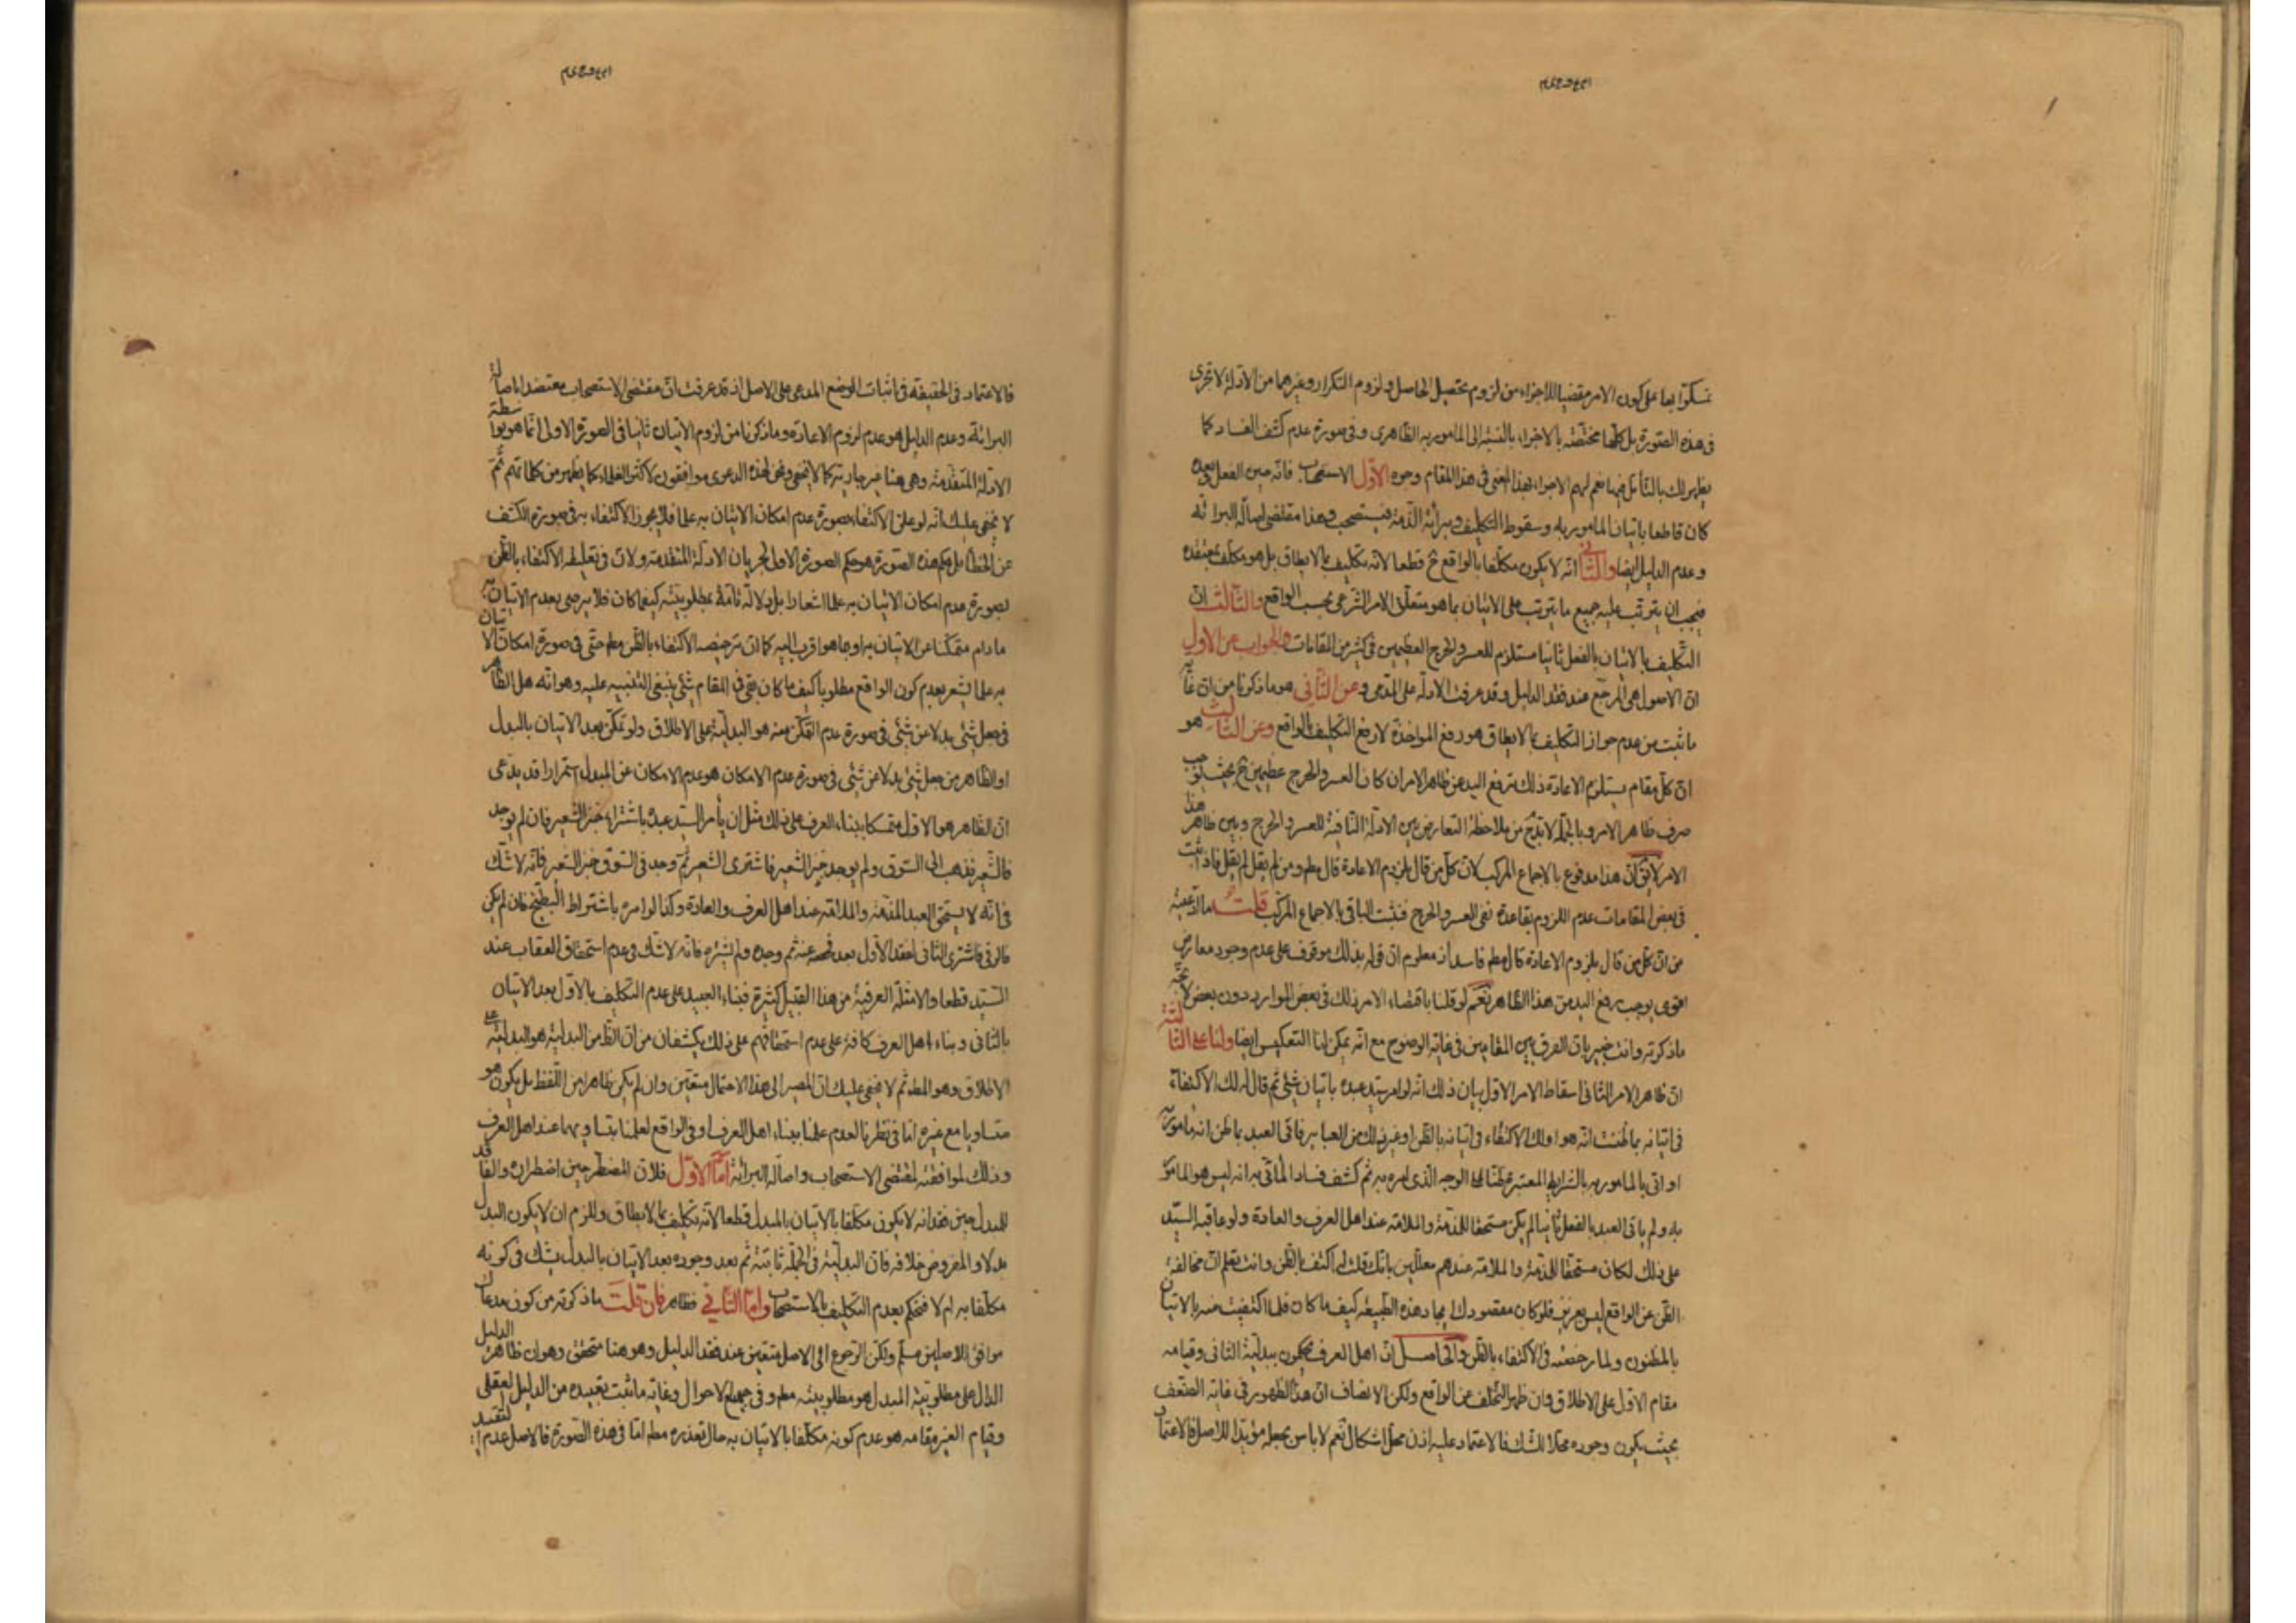 تمسكوا بها على كون الامر مقتضيا للاجزاء من لزوم تحصيل الحاصل ولزوم التكرار وغيرهما من الادلة لا تجرى
فى هذه الصورة بل كلها مختصة بالاجزاء بالنسبة الى المامور به الظاهرى وفى صورة عدم كشف الفساد كما
يظهر لك بالتأمل فيها نعم لهم الاجزاء بهذا المعنى فى هذا المقام وجوه الاول الاستصحاب فانه حين الفعل وبعده
كان قاطعا باتيان المامور به وسقوط التكليف وبرائة الذمة فيستصحب وهذا مقتضى اصالة البرائة
وعدم الدليل ايضا والثانى انه لا يكون مكلفا بالواقع ح قطعا لانه تكليف بما لا يطاق بل هو مكلف بمعتقده
فيجب ان يترتب عليه جميع ما يترتب على الاتيان بما هو متعلق الامر الشرعى بحسب الواقع والثالث ان
التكليف بالاتيان بالفعل ثانيا مستلزم للعسر والحرج العظيمين فى كثير من المقامات والجواب عن الاول
ان الاصول هى المرجع عند فقد الدليل وقد عرفت الادلة على المدعى وعن الثانى هو ما ذكرنا من ان غاية
ما ثبت من عدم جواز التكليف بما لا يطاق هو رفع المواخذة لا رفع التكليف بالواقع وعن الثالث هو
ان كل مقام يستلزم الاعادة ذلك نرفع اليد عن ظاهر الامر ان كان العسر والحرج عظيمين ح بحيث يوجب
صرف ظاهر الامر وبالجملة لا بد ح من ملاحظة التعارض بين الادلة النافية للعسر والحرج وبين ظاهر هذا
الامر لا يق ان هذا مدفوع بالاجماع المركب لان كل من قال بلزوم الاعادة قال مطم ومن لم يقل لم يقل فاذا ثبت
فى بعض المقامات عدم اللزوم بقاعدة نفى العسر والحرج فيثبت الباقى بالاجماع المركب قلت ما ادعيته
من ان كل من قال بلزوم الاعادة قال مطم فاسد اذ معلوم ان قوله بذلك موقوف على عدم وجود معارض
اقوى يوجب رفع اليد من هذا الظاهر نعم لو قلنا باقتضاء الامر ذلك فى بعض الموارد دون بعض لاتجه
ما ذكرته وانت خبير بان الفرق بين المقامين فى غاية الوضوح مع انه يمكن لنا التعكيس ايضا ولنا على الثالثة
ان ظاهر الامر الثانى اسقاط الامر الاول بيان ذلك انه لو امر سيد عبده باتيان شئ ثم قال له لك الاكتفاء
فى اتيانه بما ظننت انه هو او لك الاكتفاء فى اتيانه بالظن او غير ذلك من العبائر فاتى العبد بما ظن انه مامور به
او اتى بالمامور به بالشرايط المعتبرة ظنا على الوجه الذى امره به ثم كشف فساد المأتى به انه ليس هو المامور
به ولم يات العبد بالفعل ثانيا لم يكن مستحقا للمذمة والملامة عند اهل العرف والعادة ولو عاقبه السيد
على ذلك لكان مستحقا للمذمة والملامة عندهم معللين بانك قلت له اكتف بالظن وانت تعلم ان مخالفة
الظن عن الواقع ليس بعزيز فلو كان مقصودك ايجاد هذه الطبيعة كيف ما كان فلما اكتفيت منه بالاتيان
بالمظنون ولما رخصته فى الاكتفاء بالظن والحاصل ان اهل العرف يحكمون ببدلية الثانى وقيامه
مقام الاول على الاطلاق وان ظهر التخلف عن الواقع ولكن الانصاف ان هذا الظهور فى غاية الضعف
بحيث يكون وجوده محلا للشك فالاعتماد عليه اذن محل اشكال نعم لا باس بجعله مؤيدا للاصل فالاعتماد
فالاعتماد فى الحقيقة فى اثبات الوضع المدعى على الاصل اذ قد عرفت ان مقتضى الاستصحاب معتضدا باصالة
البرائة وعدم الدليل هو عدم لزوم الاعادة وما ذكرنا من لزوم الاتيان ثانيا فى الصورة الاول انما هو بواسطة
الادلة المتقدمة وهى هنا غير جارية كما لا يخفى ونحن لهذه الدعوى موافقون لاكثر العلماء كما يظهر من كلماتهم ثم
لا يخفى عليك انه لو علق الاكتفاء بصورة عدم امكان الاتيان به علما فلا يجوز الاكتفاء به فى صورة الكشف
عن الخطا بل حكم هذه الصورة هو حكم الصورة الاول لجريان الادلة المتقدمة ولان فى تعليقه الاكتفاء بالظن
بصورة عدم امكان الاتيان به علما اشعارا بل دلالة تامة بمطلوبيته كيفما كان فلا يرضى بعدم الاتيان به
ما دام متمكنا عن الاتيان به او بما هو اقرب اليه كما ان ترخيصه الاكتفاء بالظن مطم حتى فى صورة امكان الاتيان
به علما يشعر بعدم كون الواقع مطلوبا كيف ما كان بقى فى المقام شئ ينبغى التنبيه عليه وهو انه هل الظاهر
فى جعل شئ بدلا عن شئ فى صورة عدم التمكن منه هو البدلية على الاطلاق ولو تمكن بعد الاتيان بالبدل
او الظاهر من جعل شئ بدلا عن شئ فى صورة عدم الامكان هو عدم الامكان عن المبدل استمرارا قد يدعى
ان الظاهر هو الاول متمسكا ببناء العرف على ذلك مثل ان يأمر السيد عبده باشتراء خبز الشعير فان لم يوجد
فالشعير فذهب الى السوق ولم يوجد خبز الشعير فاشترى الشعير ثم وجد فى السوق خبز الشعير فانه لا شك
فى انه لا يستحق العبد المذمة والملامة عند اهل العرف والعادة وكذا لو امره باشتراط البطيخ فان لم يكن
فالرقى فاشترى الثانى لفقد الاول بعد فحصه عنه ثم وجده ولم يشتره فانه لا شك فى عدم استحقاق العقاب عند
السيد قطعا والامثلة العرفية من هذا القبيل كثيرة فبناء العبيد على عدم التكليف بالاول بعد الاتيان
بالثانى وبناء اهل العرف كافة على عدم استحقاقهم على ذلك يكشفان من ان الظ من البدلية هو البدلية على
الاطلاق وهو المط ثم لا يخفى عليك ان المصير الى هذا الاحتمال متعين وان لم يكن ظاهرا من اللفظ بل يكون هو
متساويا مع غيره اما فى نظرنا لعدم علمنا ببناء اهل العرف او فى الواقع لعلمنا بتساويهما عند اهل العرف
وذلك لموافقته لمقتضى الاستصحاب واصالة البرائة اما الاول فلان المضطر حين اضطراره والفاقد
للمبدل حين فقدانه لا يكون مكلفا بالاتيان بالمبدل قطعا لانه تكليف بما لا يطاق وللزم ان لا يكون البدل
بدلا والمفروض خلافه فان البدلية فى الجملة ثابتة ثم بعد وجوده بعد الاتيان بالبدل يشك فى كونه
مكلفا به ام لا فنحكم بعدم التكليف بالاستصحاب واما الثانى فظاهر فان قلت ما ذكرته من كون مدعاك
موافق للاصلين مسلم ولكن الرجوع الى الاصل متعين عند فقد الدليل وهو هنا متحقق وهو ان ظاهر الدليل
الدال على مطلوبية المبدل هو مطلوبيته مطم وفى جميع الاحوال وغاية ما ثبت تقييده من الدليل العقلى
وقيام الغير مقامه هو عدم كونه مكلفا بالاتيان به حال تعذره مطم اما فى هذه الصورة فالاصل عدم التقييد